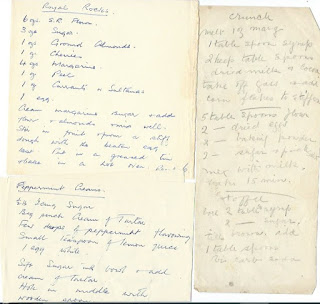 Royal Rocks.
6 oz S.R. Flour
3 oz Sugar
1 oz Ground Almonds.
1 oz Cherries
4 oz Margarine
1 oz Peel
1 oz Currants & Sultanas
1 egg.
Cream margarine sugar & add
flour & almonds mix well.
Stir in fruit & form a stiff
dough with the beaten egg
Put in a greased tin
& bake in a hot oven
Peppermint Creams.
Icing Sugar
Big pinch Cream of Tartar
Few drops of peppermint flavouring
Small teaspoon of lemon juice
1 egg white
Sift Sugar into bowl & add
cream of tartar
Hole in middle with
wooden spoon
Crunch
Melt 1 oz marg
1 table spoon syrup
2 heap table spoons
dried milk
take off gas & add
corn flakes to stiffen
5 table spoons flour
2 — dried egg
2 — baking powder
2 — sugar
mix with milk
15 mins.
Toffee
2 table syrup
2 — sugar.
add
1 table spoon
bic carb soda